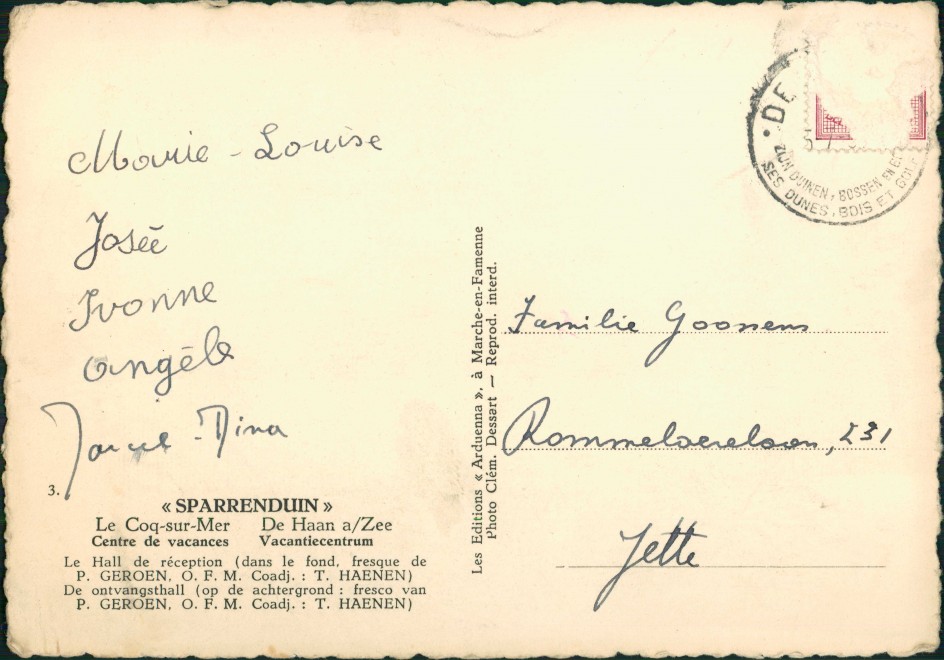 Marie - Louise
Josée
Yvonne
Angèle
- Dina
3.
« SPARRENDUIN »
Le Coq-sur-Mer De Haan a/Zee
Centre de vacances Vacantiecentrum
Le Hall de réception (dans le fond, fresque de
P. GEROEN, O. F. M. Coadj. : T. HAENEN)
De ontvangsthall (op de achtergrond : fresco van
P. GEROEN, O. F. M. Coadj. : T. HAENEN)
Les Editions « Arduenna », à Marche-en-Famenne
Photo Clém. Dessart — Reprod. interd.
DE
ZIJN DUINEN, BOSSEN EN
SES DUNES, BOIS ET GOLF
Familie Goossens
231
Jette